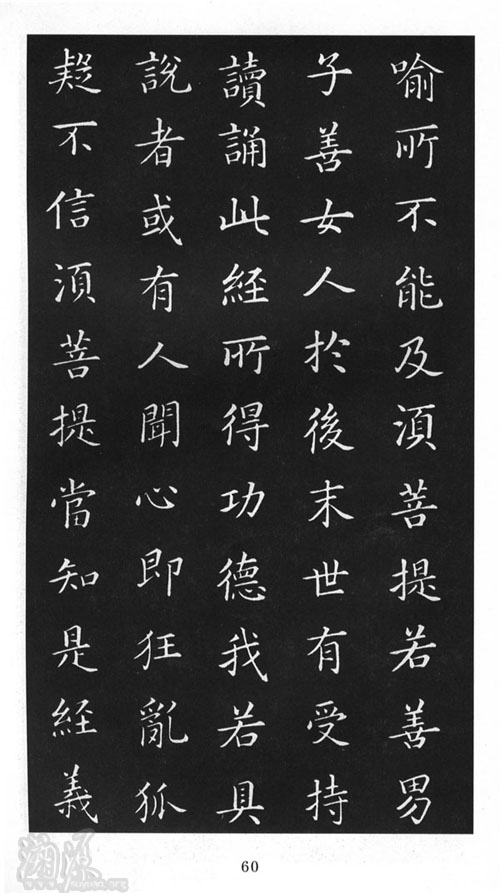 喻所不能及湏菩提若善男
子善女人扵後末世有受持
讀誦此經所得功德我若具
說者或有人聞心即狂亂狐
疑不信湏菩提當知是經義
60